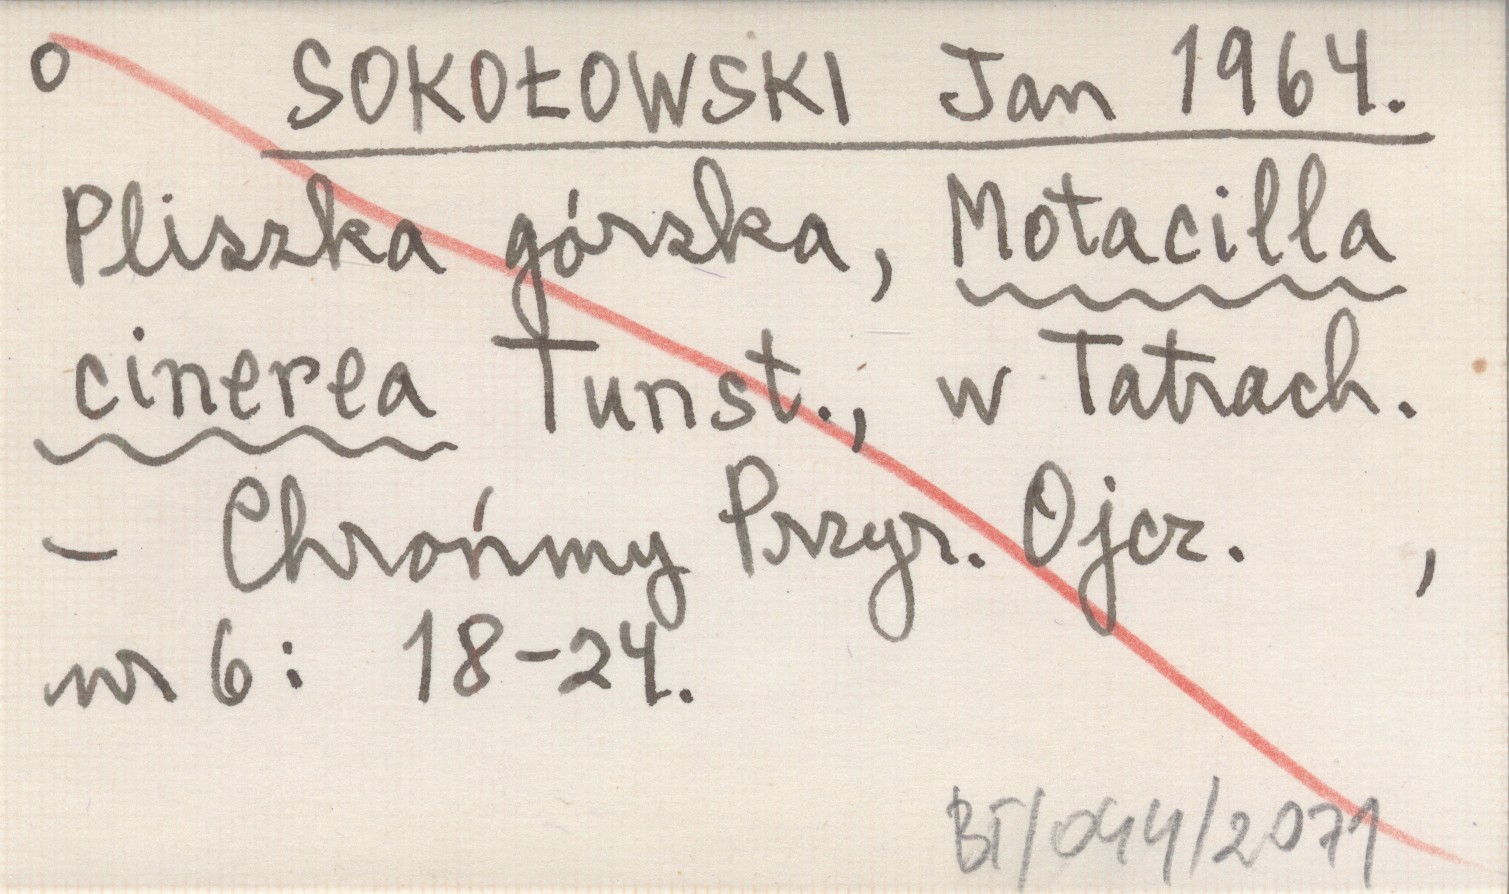 o SOKOŁOWSKI Jan 1964.
Pliszka górska, Motacilla
cinerea Tunst., w Tatrach.
- Chrońmy Przyr. Ojcz. ,
nr 6: 18-24.
BT/044/2071